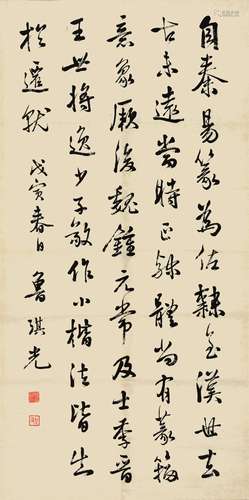 自秦易篆為佐隸至漢世去
古未遠當時正隸體尚有篆籀
意象厥後魏鍾元常及士季晋
王世將逸少子敬作小楷法皆出
於遷就
戊寅春日 魯琪光